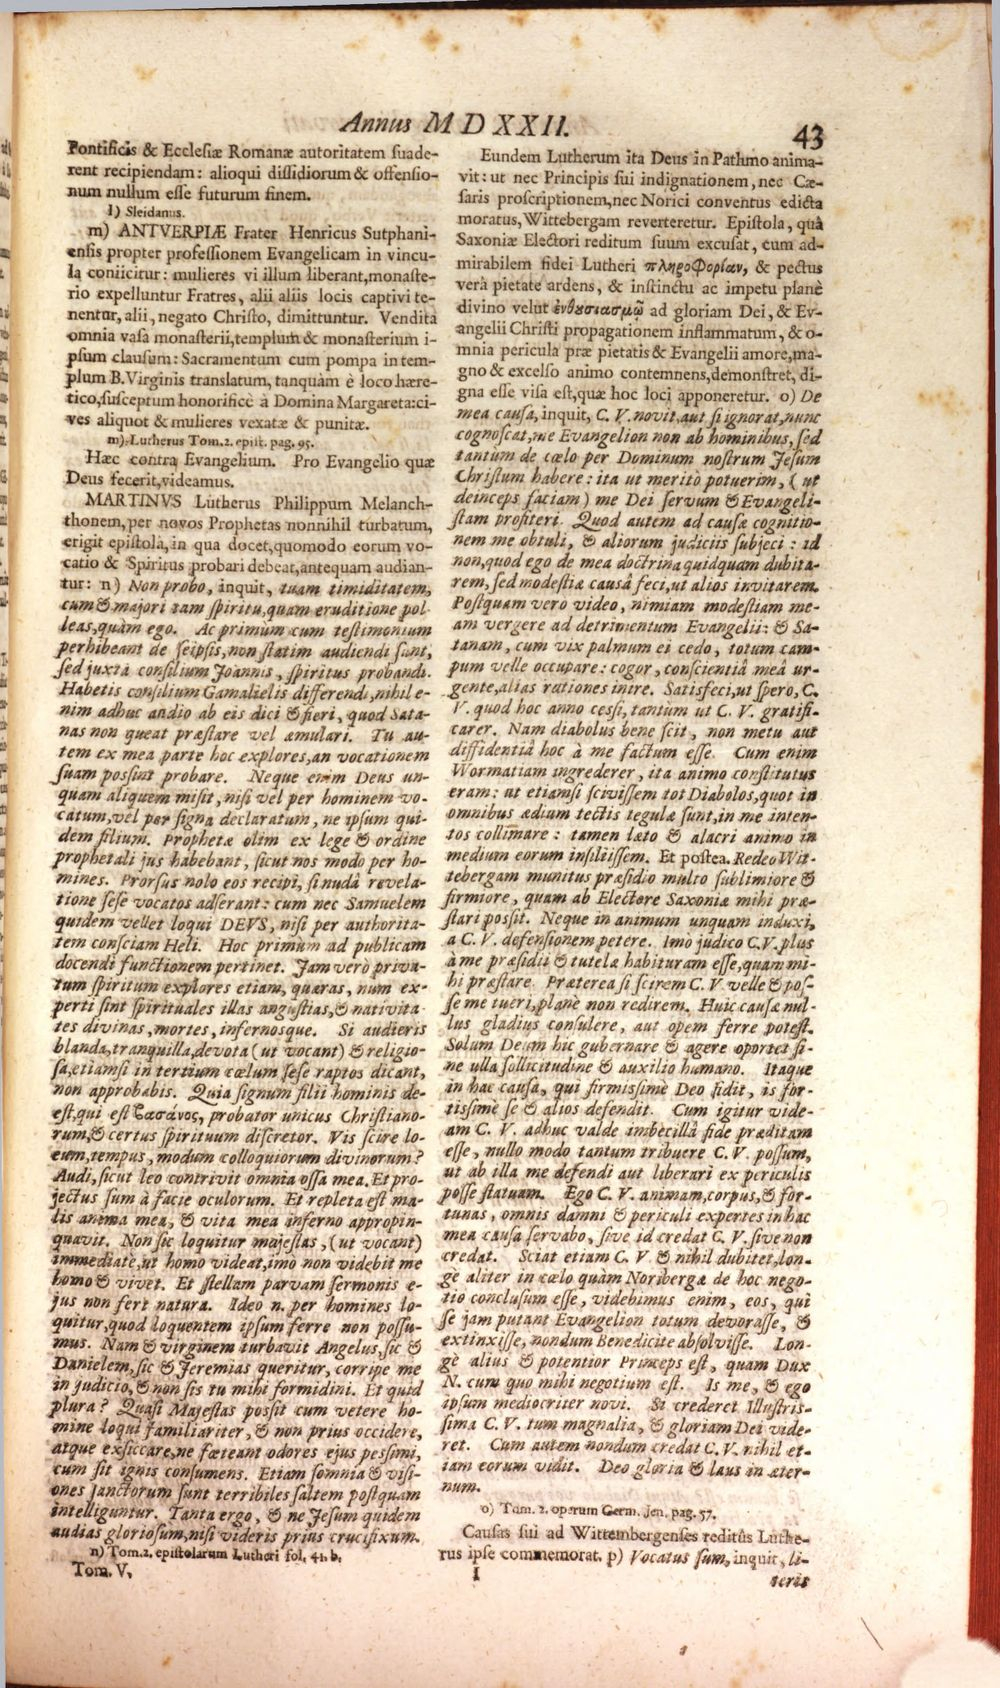 Annus MDXXII.
43
Pontificis & Ecclesiæ Romanæ autoritatem suade-
rent recipiendam: alioqui dissidiorum & offensio-
num nullum esse futurum finem.
l) Sleidanus.
m) ANTVERPIÆ Frater Henricus Sutphani-
ensis propter professionem Evangelicam in vincu-
la coniicitur: mulieres vi illum liberant, monaste-
rio expelluntur Fratres, alii aliis locis captivi te-
nentur, alii, negato Christo, dimittuntur. Vendita
omnia vasa monasterii, templum & monasterium i-
psum clausum: Sacramentum cum pompa in tem-
plum B. Virginis translatum, tanquàm è loco hære-
tico, susceptum honorificè à Domina Margareta: ci-
ves aliquot & mulieres vexatæ & punitæ.
m) Lutherus Tom. 2. epist. pag. 95.
Hæc contra Evangelium. Pro Evangelio quæ
Deus fecerit, videamus.
MARTINVS Lutherus Philippum Melanch-
thonem, per novos Prophetas nonnihil turbatum,
erigit epistolâ, in qua docet, quomodo eorum vo-
catio & Spiritus probari debeat, antequam audian-
tur: n) Non probo, inquit, tuam timiditatem,
cum & majori tam spiritu, quam eruditione pol-
leas, quàm ego. Ac primum cum testimonium
perhibeant de seipsis, non statim audiendi sunt,
sed juxta consilium Joannis, spiritus probandi.
Habetis consilium Gamalielis differendi, nihil e-
nim adhuc audio ab eis dici & fieri, quod Sata-
nas non queat præstare vel æmulari. Tu au-
tem ex mea parte hoc explores, an vocationem
suam possint probare. Neque enim Deus un-
quam aliquem misit, nisi vel per hominem vo-
catum, vel per signa declaratum, ne ipsum qui-
dem filium. Prophetæ olim ex lege & ordine
prophetali jus habebant, sicut nos modo per ho-
mines. Prorsus nolo eos recipi, si nudâ revela-
tione sese vocatos adserant: cum nec Samuelem
quidem vellet loqui DEVS, nisi per authorita-
tem consciam Heli. Hoc primum ad publicam
docendi functionem pertinet. Jam verò priva-
tum spiritum explores etiam, quæras, num ex-
perti sint spirituales illas angustias, & nativita-
tes divinas, mortes, infernosque. Si audieris
blanda, tranquilla, devota (ut vocant) & religio-
sa, etiamsi in tertium cœlum sese raptos dicant,
non approbabis. Quia signum filii hominis de-
est, qui est βασάνος, probator unicus Christiano-
rum, & certus spirituum discretor. Vis scire lo-
cum, tempus, modum colloquiorum divinorum?
Audi, sicut leo contrivit omnia ossa mea. Et pro-
jectus sum à facie oculorum. Et repleta est ma-
lis anima mea, & vita mea inferno appropin-
quavit. Non sic loquitur majestas, (ut vocant)
immediatè, ut homo videat, imo non videbit me
homo & vivet. Et stellam parvam sermonis e-
jus non fert natura. Ideo n. per homines lo-
quitur, quod loquentem ipsum ferre non possu-
mus. Nam & virginem turbavit Angelus, sic &
Danielem, sic & Jeremias queritur, corripe me
in judicio, & non sis tu mihi formidini. Et quid
plura? Quasi Majestas possit cum vetere ho-
mine loqui familiariter, & non prius occidere,
atque exsiccare, ne fœteant odores ejus pessimi,
cum sit ignis consumens. Etiam somnia & visi-
ones sanctorum sunt terribiles saltem postquam
intelliguntur. Tanta ergo, & ne Jesum quidem
audias gloriosum, nisi videris prius crucifixum.
n) Tom. 2. epistolarum Lutheri fol. 41. b.
Tom. V.
Eundem Lutherum ita Deus in Pathmo anima-
vit: ut nec Principis sui indignationem, nec Cæ-
saris proscriptionem, nec Norici conventus edicta
moratus, Wittebergam reverteretur. Epistola, quâ
Saxoniæ Electori reditum suum excusat, cum ad-
mirabilem fidei Lutheri πληροφορίαν, & pectus
verâ pietate ardens, & instinctu ac impetu planè
divino velut ἐνθουσιασμῷ ad gloriam Dei, & Ev-
angelii Christi propagationem inflammatum, & o-
mnia pericula præ pietatis & Evangelii amore, ma-
gno & excelso animo contemnens, demonstret, di-
gna esse visa est, quæ hoc loci apponeretur. o) De
mea causa, inquit, C. V. novit, aut si ignorat, nunc
cognoscat, me Evangelion non ab hominibus, sed
tantum de cœlo per Dominum nostrum Jesum
Christum habere: ita ut meritò potuerim, (ut
deinceps faciam) me Dei servum & Evangeli-
stam profiteri. Quod autem ad causæ cognitio-
nem me obtuli, & aliorum judiciis subjeci: id
non, quod ego de mea doctrina quidquam dubita-
rem, sed modestiæ causâ feci, ut alios invitarem.
Postquam vero video, nimiam modestiam me-
am vergere ad detrimentum Evangelii: & Sa-
tanam, cum vix palmum ei cedo, totum cam-
pum velle occupare: cogor, conscientiâ meâ ur-
gente, alias rationes inire. Satisfeci, ut spero, C.
V. quod hoc anno cessi, tantùm ut C. V. gratifi-
carer. Nam diabolus bene scit, non metu aut
diffidentiâ hoc à me factum esse. Cum enim
Wormatiam ingrederer, ita animo constitutus
eram: ut etiamsi scivissem tot Diabolos, quot in
omnibus ædium tectis tegulæ sunt, in me inten-
tos collimare: tamen læto & alacri animo in
medium eorum insiliissem. Et postea. Redeo Wit-
tebergam munitus præsidio multo sublimiore &
firmiore, quam ab Electore Saxoniæ mihi præ-
stari possit. Neque in animum unquam induxi,
a C. V. defensionem petere. Imò judico C. V. plus
à me præsidii & tutelæ habituram esse, quam mi-
hi præstare. Præterea si scirem C. V. velle & pos-
se me tueri, planè non redirem. Huic causæ nul-
lus gladius consulere, aut opem ferre potest.
Solum Deum hic gubernare & agere oportet si-
ne ulla sollicitudine & auxilio humano. Itaque
in hac causa, qui firmissimè Deo fidit, is for-
tissimè se & alios defendit. Cum igitur vide-
am C. V. adhuc valde imbecillâ fide præditam
esse, nullo modo tantum tribuere C. V. possum,
ut ab illa me defendi aut liberari ex periculis
posse statuam. Ego C. V. animam, corpus, & for-
tunas, omnis damni & periculi expertes in hac
mea causa servabo, sive id credat C. V. sive non
credat. Sciat etiam C. V. & nihil dubitet, lon-
gè aliter in cœlo quàm Noribergæ de hoc nego-
tio conclusum esse, videbimus enim, eos, qui
se jam putant Evangelion totum devorasse, &
extinxisse, nondum Benedicite absolvisse. Lon-
gè alius & potentior Princeps est, quam Dux
N. cum quo mihi negotium est. Is me, & ego
ipsum mediocriter novi. Si crederet Illustris-
sima C. V. tum magnalia, & gloriam Dei vide-
ret. Cum autem nondum credat C. V. nihil et-
iam eorum vidit. Deo gloria & laus in æter-
num.
o) Tom. 2. operum Germ. Jen. pag. 57.
Causas sui ad Wittembergenses reditûs Luthe-
rus ipse commemorat. p) Vocatus sum, inquit, li-
I
teris